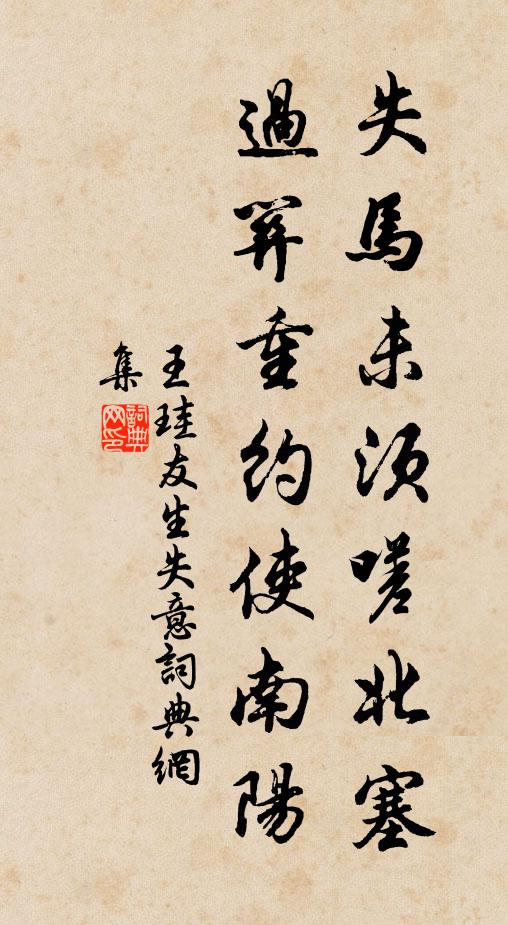 失馬未須嗟北塞
過笄重約使南陽
王珪友生失意詞典網
集
詞典
网印